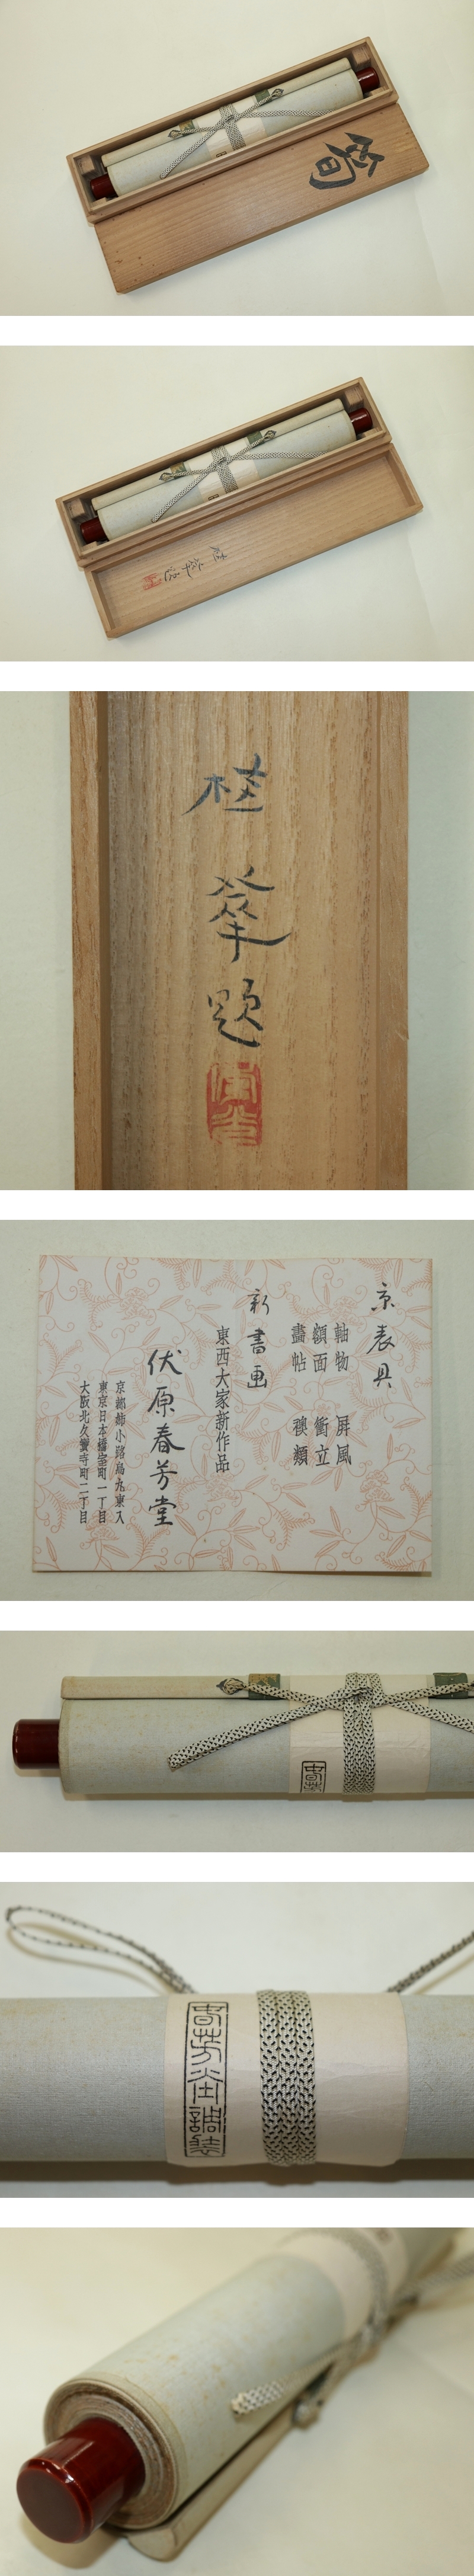 筍
桂華題
桂華題
京表具
軸物 屏風
額面 衝立
畫帖 襖類
新書画
東西大家新作品
伏原春芳堂
京都姉小路烏丸東入
東京日本橋室町一丁目
大阪北久寶寺町二丁目
春芳
春芳堂調装